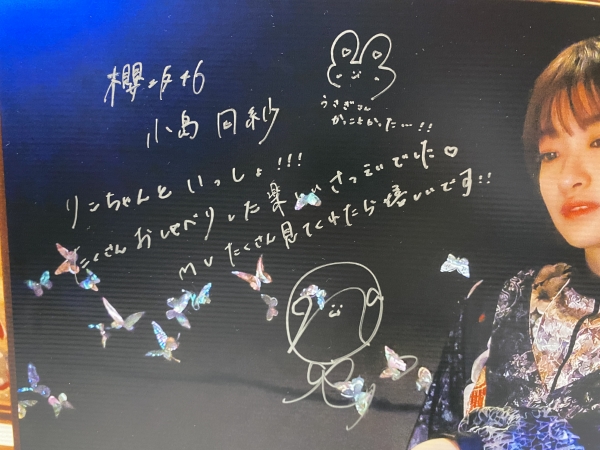 櫻坂46
小島凪紗
うさぎさん
かっこよかった…!!
りこちゃんといっしょ!!!
たくさんおしゃべりした楽しいさつえいでした♡
MVたくさん見てくれたら嬉しいです!!